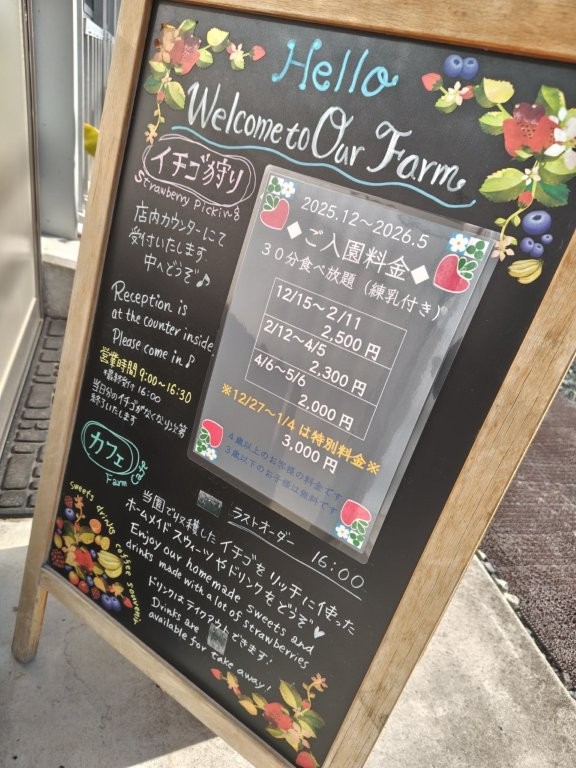 Hello
Welcome to Our Farm
イチゴ狩り
Strawberry Picking
店内カウンターにて
受付いたします
中へどうぞ♪
Reception is
at the counter inside.
Please come in♪
営業時間 9:00〜16:30
*最終受付 16:00
当日分のイチゴがなくなり次第
終了いたします
2025.12〜2026.5
◆ご入園料金◆
30分食べ放題（練乳付き）
12/15〜2/11
2,500円
2/12〜4/5
2,300円
4/6〜5/6
2,000円
※12/27〜1/4は特別料金※
3,000円
4歳以上のお客様の料金です
3歳以下のお子様は無料です
カフェ
Farm Cafe
ラストオーダー 16:00
sweets drink coffee souvenir
当園で収穫したイチゴをリッチに使った
ホームメイドスウィーツやドリンクをどうぞ♥
Enjoy our homemade sweets and
drinks made with a lot of strawberries
ドリンクはテイクアウトできます!
Drinks are
available for take away!